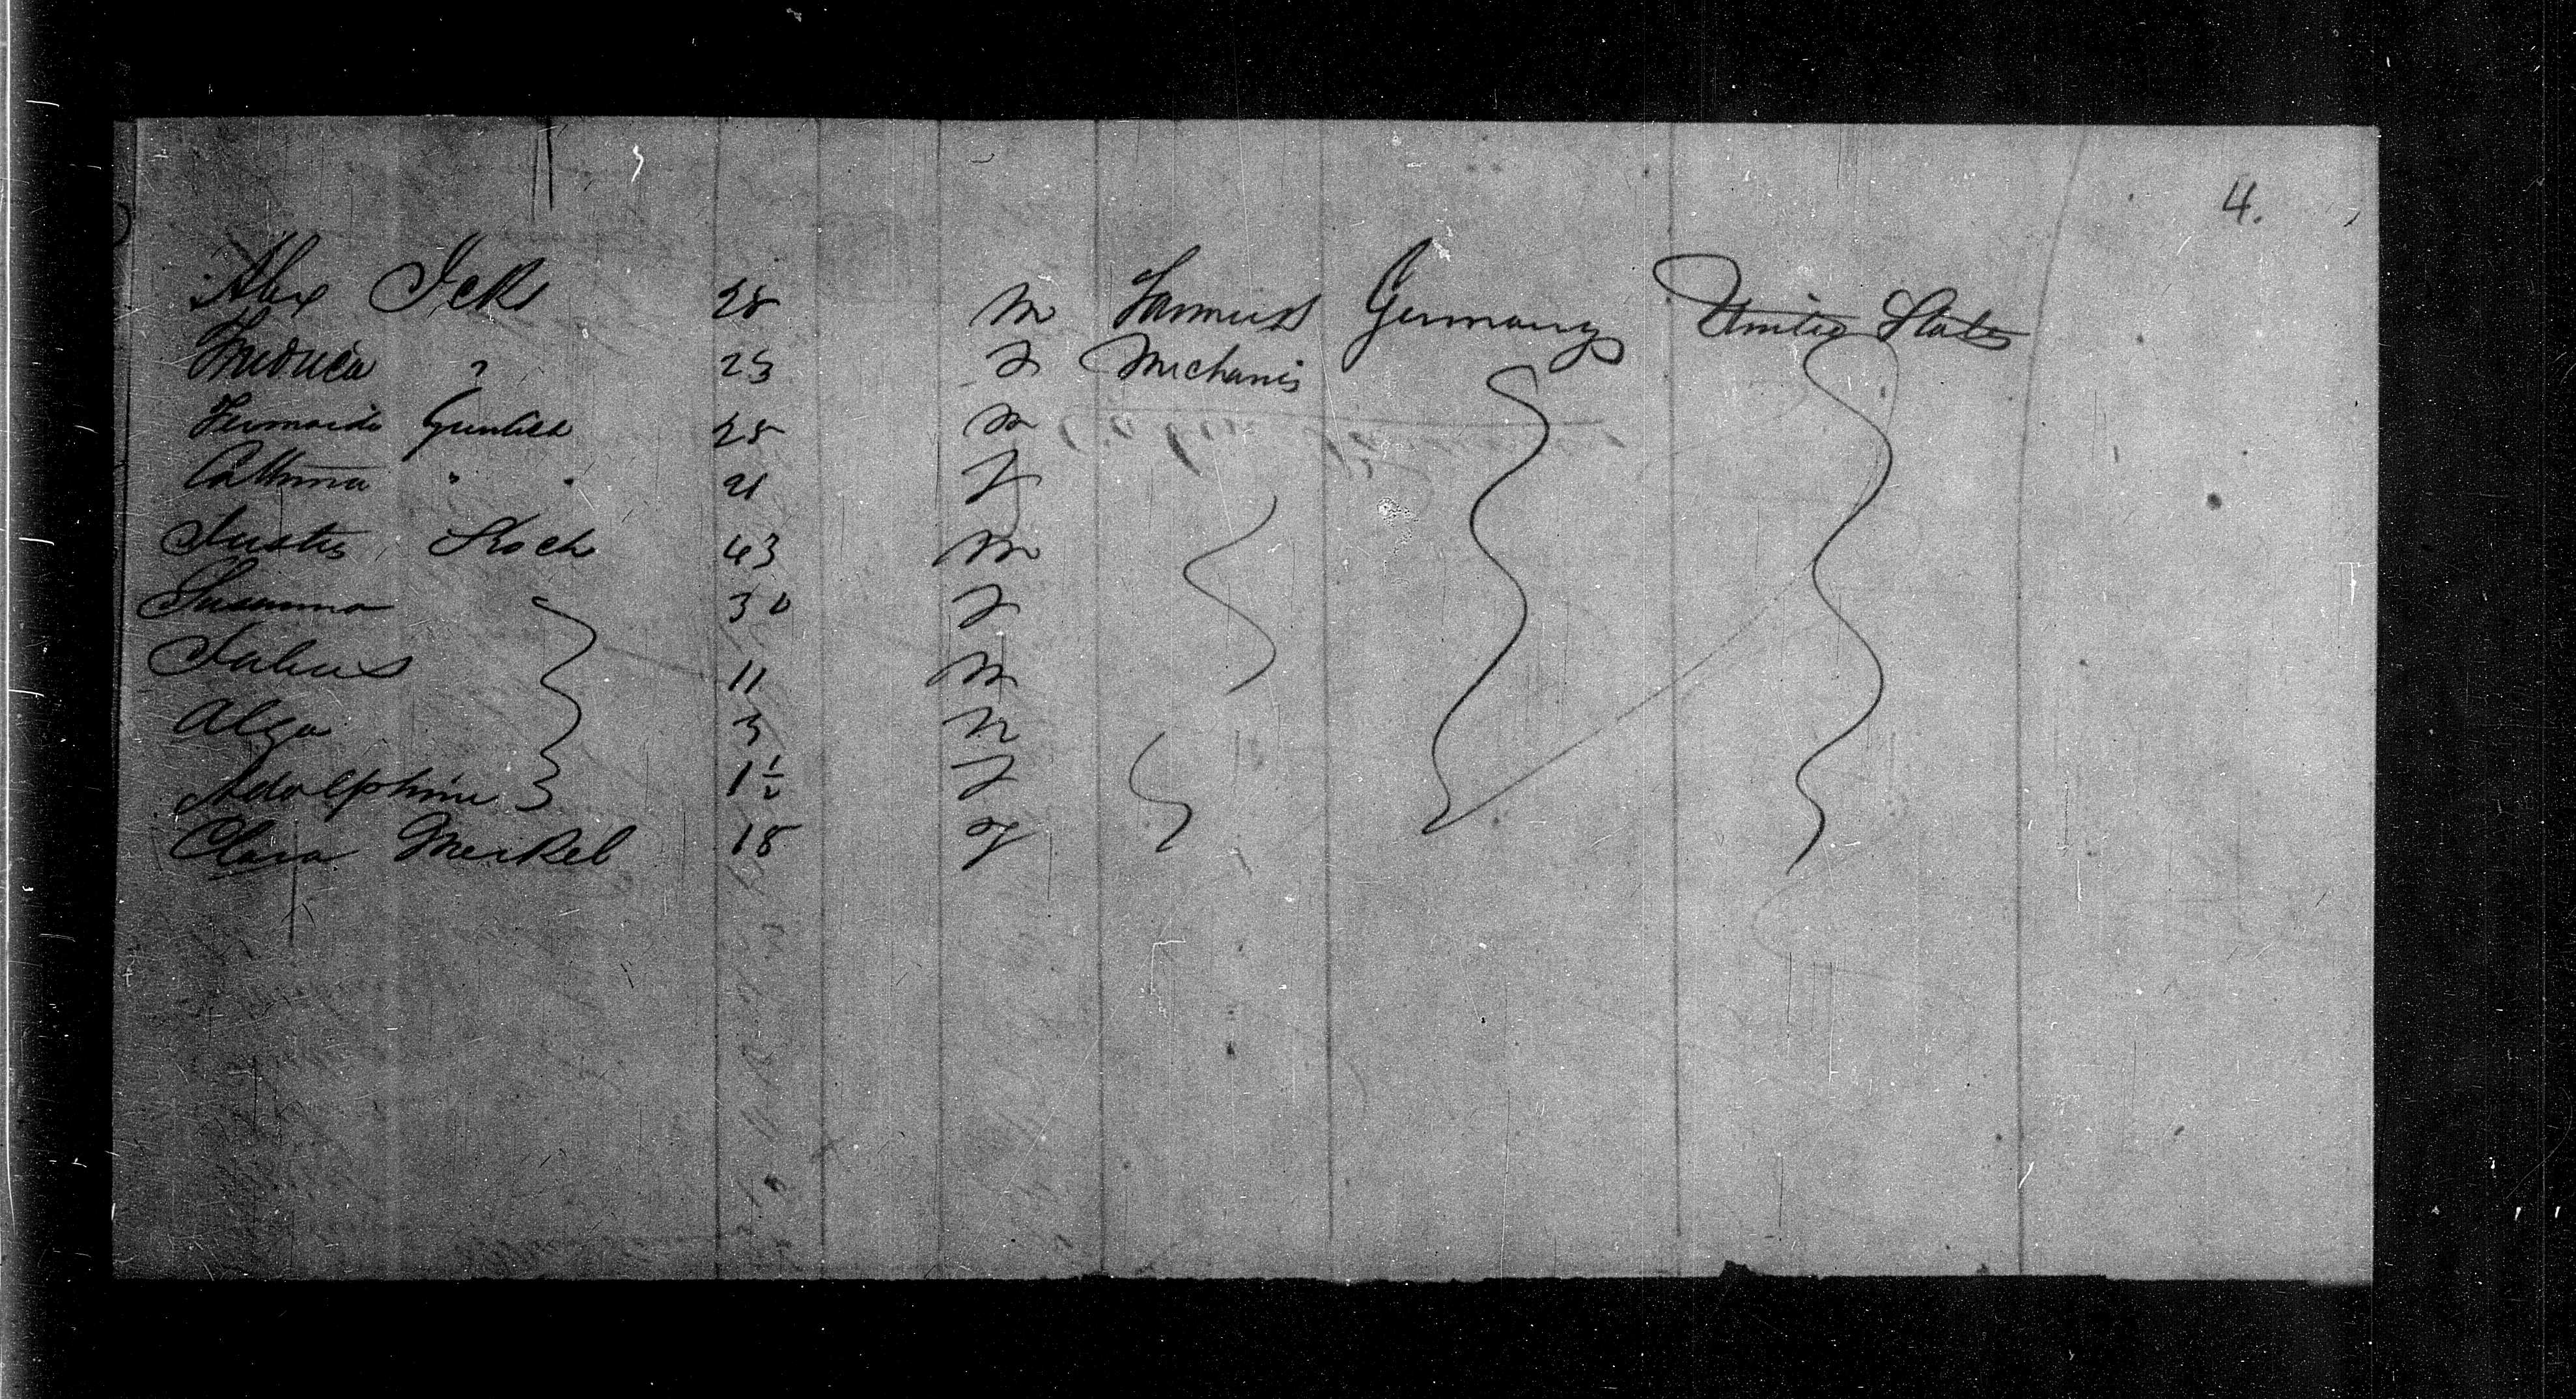 4.
Alex Icks 28 m Farmers Germany United States
Fredrica " 23 F Mechanics
Fernando 28 m
Cathrina " " 21 F
Justus Koch 43 m
Susanna 30 F
Julius 11 m
Alga 3
Adolphine 1 1/2 F
Clara Merkel 18 F